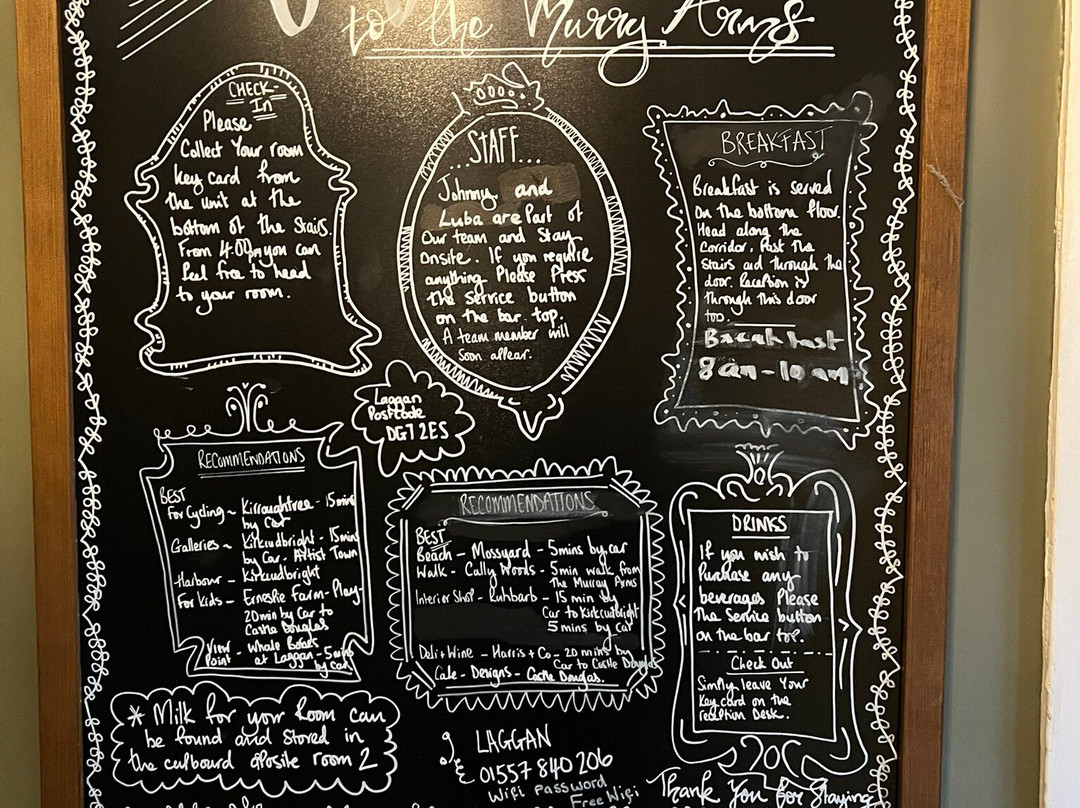 to the Murry Arms
CHECK-
In
Please
Collect Your room
key card from
the unit at the
bottom of the Stairs.
From 4:00pm you can
feel free to head
to your room.
...STAFF...
Johnny and
Luba are Part of
Our team and Stay
Onsite. If you require
anything Please Press
the service button
on the bar top.
A team member will
Soon appear.
BREAKFAST
Breakfast is served
on the bottom floor.
Head along the
Corridor. Past the
stairs and through the
door. Reception is
through this door
too.
Breakfast
8am-10am
Laggan
Postcode
DG7 2ES
RECOMMENDATIONS
BEST
For Cycling ~ Kirroughtree - 15mins
by Car
Galleries ~ Kirkcudbright - 15min
by Car - Artist Town
Harbour - Kirkcudbright
For Kids - Ernespie Farm - Play-
20min by Car to
Castle Douglas
View Point - Whale Bones
at Laggan - 5mins
by car
RECOMMENDATIONS
BEST
Beach - Mossyard - 5mins by car
Walk - Cally Woods - 5min walk from
The Murray Arms
Interior Shop - Ruhbarb - 15 min by
Car to Kirkcudbright
5 mins by car
Deli + Wine - Harris + Co - 20 mins by
Car to Castle Douglas
Cafe - Designs - Castle Douglas.
DRINKS
If you wish to
Purchase any
beverages Please
The Service button
on the bar top.
Check Out
Simply leave Your
Key card on the
reception Desk.
* Milk for your Room can
be found and stored in
the cupboard oposite room 2
LAGGAN
01557 840 206
Wifi Password
Free Wifi
Thank You for Staying